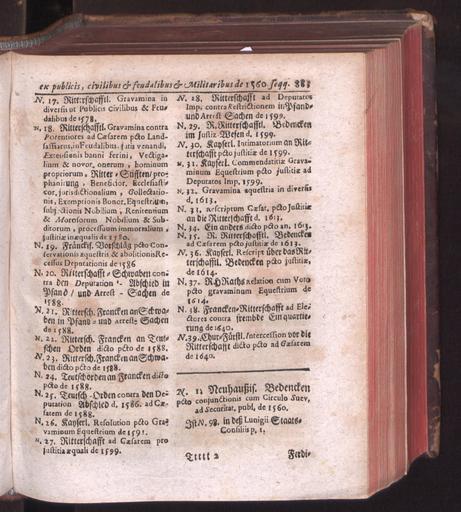 ex publicis, civilibus & feudalibus & Militaribus de 1560 seqq. 883
N. 17. Ritterschafftl. Gravamina in
diversis ut Publicis Civilibus & Feu-
dalibus de 1578.
N. 18. Ritterschafftl. Gravamina contra
Potentiores ad Cæsarem pcto Land-
sassiatus, in Feudalibus, juris venandi,
Extensionis banni ferini, Vectiga-
lium & novor. onerum, hominum
propriorum, Ritter-Stifften/pro-
phanirung, Beneficior. Ecclesiasti-
cor, jurisdictionalium, Collectatio-
nis, Exemptionis Bonor. Equestrium,
subjectionis Nobilium, Renitentium
& Morosorum Nobilium & Sub-
ditorum, processuum immoralium,
justitiæ inæqualis de 1580.
N. 19. Fränckis. Vorschläg pcto Con-
servationis æquestris & abolitionis Re-
cessus Deputationis de 1586
N. 20. Ritterschafft-Schwaben con-
tra den Deputation-Abschied in
Pfand / und Arrest-Sachen de
1588.
N. 21. Rittersch. Francken an Schwa-
ben in Pfand- und Arrest-Sachen
de 1588.
N. 22. Rittersch. Francken an Teut-
schen Orden dicto pcto de 1588.
N. 23. Rittersch. Francken an Schwa-
ben dicto pcto de 1588.
N. 24. Teutschorden an Francken dicto
pcto de 1588.
N. 25. Teutsch-Orden contra den De-
putation Abschied d. 1586. ad Cæ-
sarem de 1588.
N. 26. Kayserl. Resolution pcto Gra-
vaminum Equestrium de 1591.
N. 27. Ritterschafft ad Cæsarem pro
justitia æquali de 1599.
N. 28. Ritterschafft ad Deputatos
Imp. contra Restrictionem in Pfand-
und Arrest Sachen de 1599.
N. 29. R. Ritterschafftl. Bedencken
im Justiz-Wesen d. 1599.
N. 30. Kayserl. Intimatorium an Rit-
terschafft pcto justitiæ de 1599.
N. 31. Kayserl. Commendatitiæ Grava-
minum Equestrium pcto justitiæ ad
Deputatos Imp. 1599.
N. 32. Gravamina equestria in diversis
d. 1613.
N. 33. Rescriptum Cæsar. pcto Justitiæ
an die Ritterschafft d. 1613.
N. 34. Ein anders dicto pcto an. 1613.
N. 35. R. Ritterschafftl. Bedencken
ad Cæsarem pcto justitiæ de 1613.
N. 36. Kayserl. Rescript über das Rit-
terschafftl. Bedencken pcto justitiæ,
de 1614.
N. 37. RHRaths Relation cum Voto
pcto gravaminum Equestrium de
1614.
N. 38. Francken-Ritterschafft ad Ele-
ctores contra frembde Einquartie-
rung de 1640.
N. 39. Chur-Fürstl. Intercession vor die
Ritterschafft dicto pcto ad Cæsarem
de 1640.
N. 13 Neuhaußis. Bedencken
pcto conjunctionis cum Circulo Suev.
ad Securitat. publ. de 1560.
Ist N. 98. in deß Lunigii Staats-
Consiliis p. 1.
Ttttt 2 Ferdi-